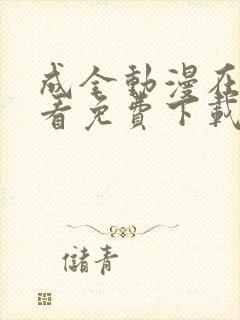 成全動漫在
看免費下載
儲青